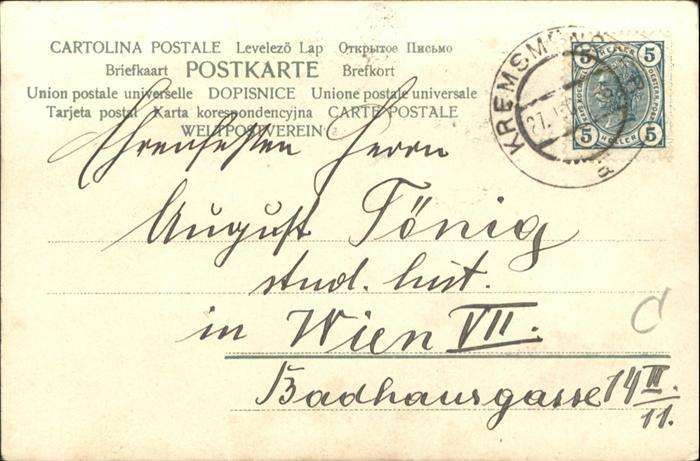 CARTOLINA POSTALE Levelező Lap Открытое Письмо
Briefkaart POSTKARTE Brefkort
Union postale universelle DOPISNICE Unione postale universale
Tarjeta postal Karta korespondencyjna CARTE POSTALE
WELTPOSTVEREIN
5 HELLER 5
5 HELLER 5
KREMSM
27.
Herrn
August Tönig
stud. hist.
in Wien VII.
Badhausgasse 14 III/11.
C